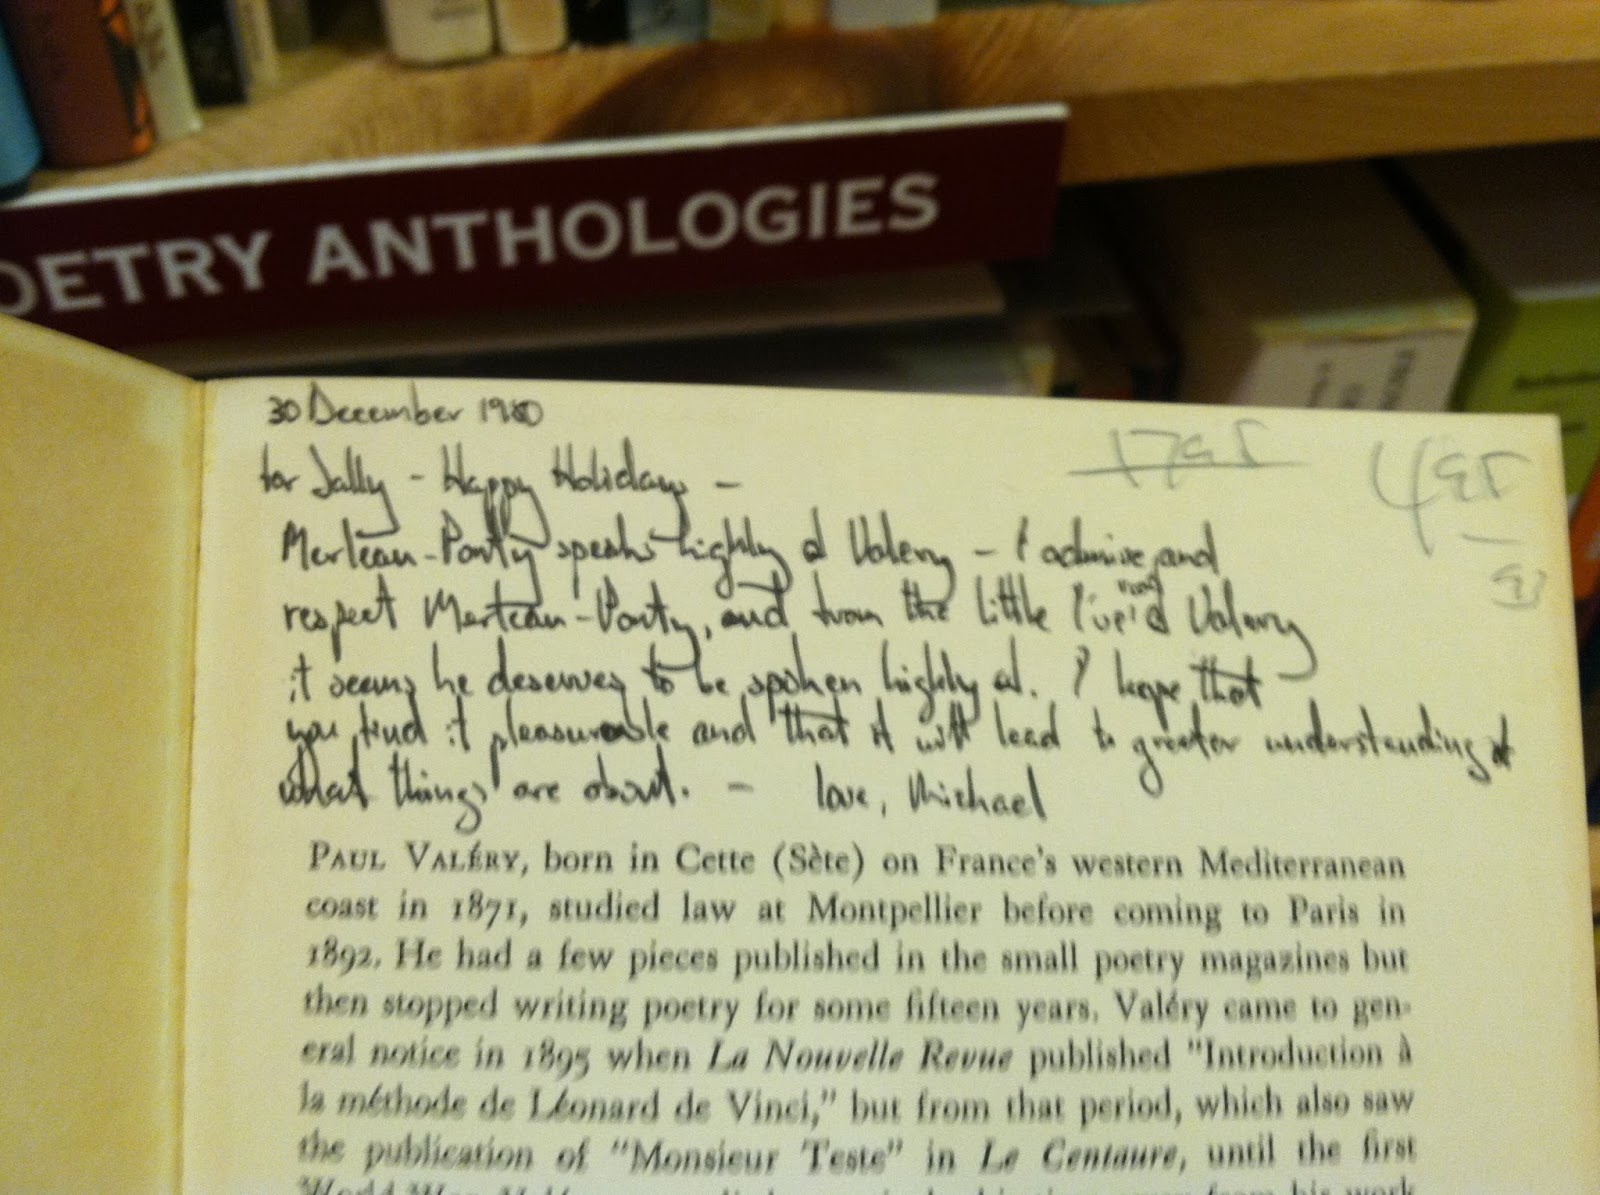 OETRY ANTHOLOGIES
30 December 1980
1795
495
for Sally - Happy Holidays -
Merleau-Ponty speaks highly of Valery - I admire and
respect Merleau-Ponty, and from the little I've read of Valery
it seems he deserves to be spoken highly of. I hope that
you find it pleasureable and that it will lead to greater understanding of
what things are about. - love, Michael
PAUL VALÉRY, born in Cette (Sète) on France's western Mediterranean
coast in 1871, studied law at Montpellier before coming to Paris in
1892. He had a few pieces published in the small poetry magazines but
then stopped writing poetry for some fifteen years. Valéry came to gen-
eral notice in 1895 when La Nouvelle Revue published "Introduction à
la méthode de Léonard de Vinci," but from that period, which also saw
the publication of "Monsieur Teste" in Le Centaure, until the first
from his work